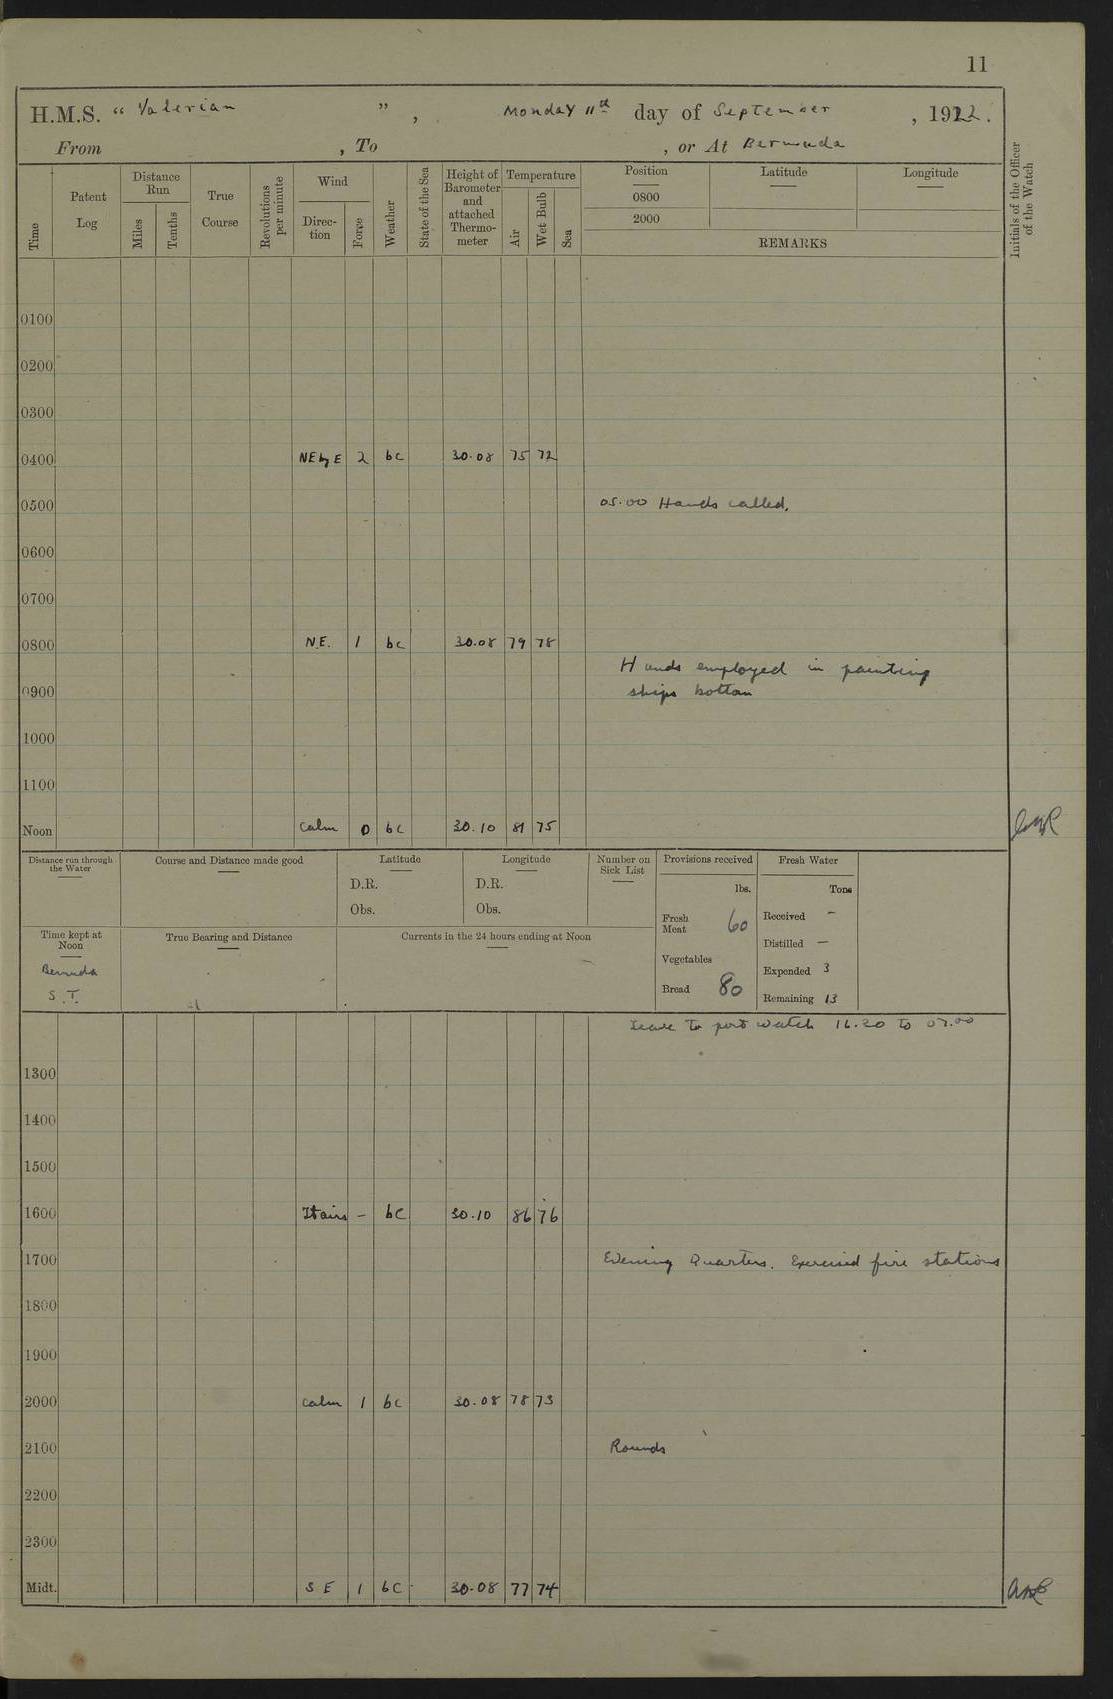 11
H.M.S. “ Valerian ”, Monday 11th day of September, 1922.
From , To , or At Bermuda
Time
Patent Log
Distance Run
Miles
Tenths
True Course
Revolutions per minute
Wind
Direc-tion
Force
Weather
State of the Sea
Height of Barometer and attached Thermo-meter
Temperature
Air
Wet Bulb
Sea
Position
0800
2000
Latitude
Longitude
REMARKS
Initials of the Officer of the Watch
0100
0200
0300
0400 NE by E 2 bc 30.08 75 72
0500 05.00 Hands called.
0600
0700
0800 N.E. 1 bc 30.08 79 78
Hands employed in painting
0900 ships bottom
1000
1100
Noon Calm 0 bc 30.10 81 75
Distance run through the Water
Course and Distance made good
Latitude
D.R.
Obs.
Longitude
D.R.
Obs.
Number on Sick List
Provisions received
lbs.
Fresh Meat 60
Vegetables
Bread 80
Fresh Water
Tons
Received –
Distilled –
Expended 3
Remaining 13
Time kept at Noon
Bermuda
S.T.
True Bearing and Distance
Currents in the 24 hours ending at Noon
–
Leave to port watch 16.20 to 07.00
1300
1400
1500
1600 – bc 30.10 86 76
1700 Evening Quarters. Exercised fire stations
1800
1900
2000 Calm 1 bc 30.08 78 73
2100 Rounds
2200
2300
Midt. S E 1 bc 30.08 77 74